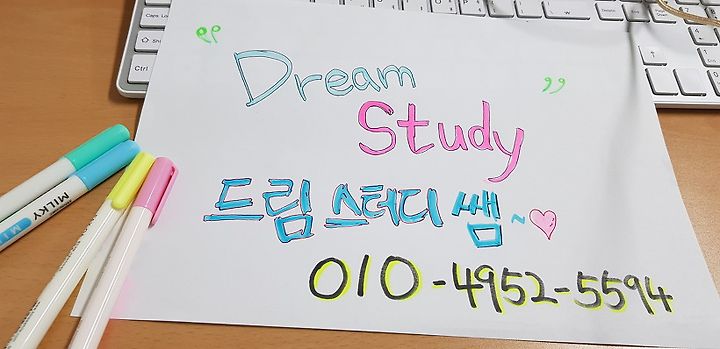 "Dream
Study"
드림 스터디 쌤~♡
010-4952-5594
MILKY
Caps Lock
Shift
Ctrl